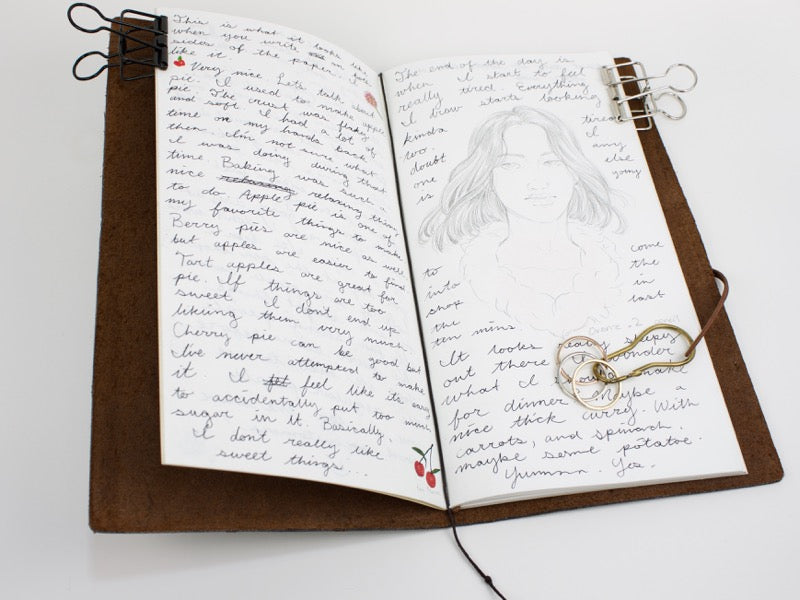 This is what it looks like
when you write on both
sides of the paper.
like it
Very nice. Let's talk about
pie. I used to make apple
pie. The crust was flakey
and soft. I had a lot of
time on my hands back
then. I'm not sure what
I was doing during that
time. Baking was such a
nice relaxing relaxing thing
to do. Apple pie is one of
my favorite things to make.
Berry pies are nice as well
but apples are easier to find
Tart apples are great for
pie. If things are too
sweet, I don't end up
likiing them very much.
Cherry pie can be good but
I've never attempted to make
it. I feel like its easy
to accidentally put too much
sugar in it. Basically,
I don't really like
sweet things...
The end of the day is
when I start to feel
really tired. Everything
I draw starts looking
kinda tired
too. I
doubt any
one else
is
to come
into the
shop in
the last
ten mins
It looks really
out there. I wonder
what I should make
for dinner. Maybe a
nice thick curry. With
carrots, and spinach.
maybe some potatoe.
Yummm. Yes.